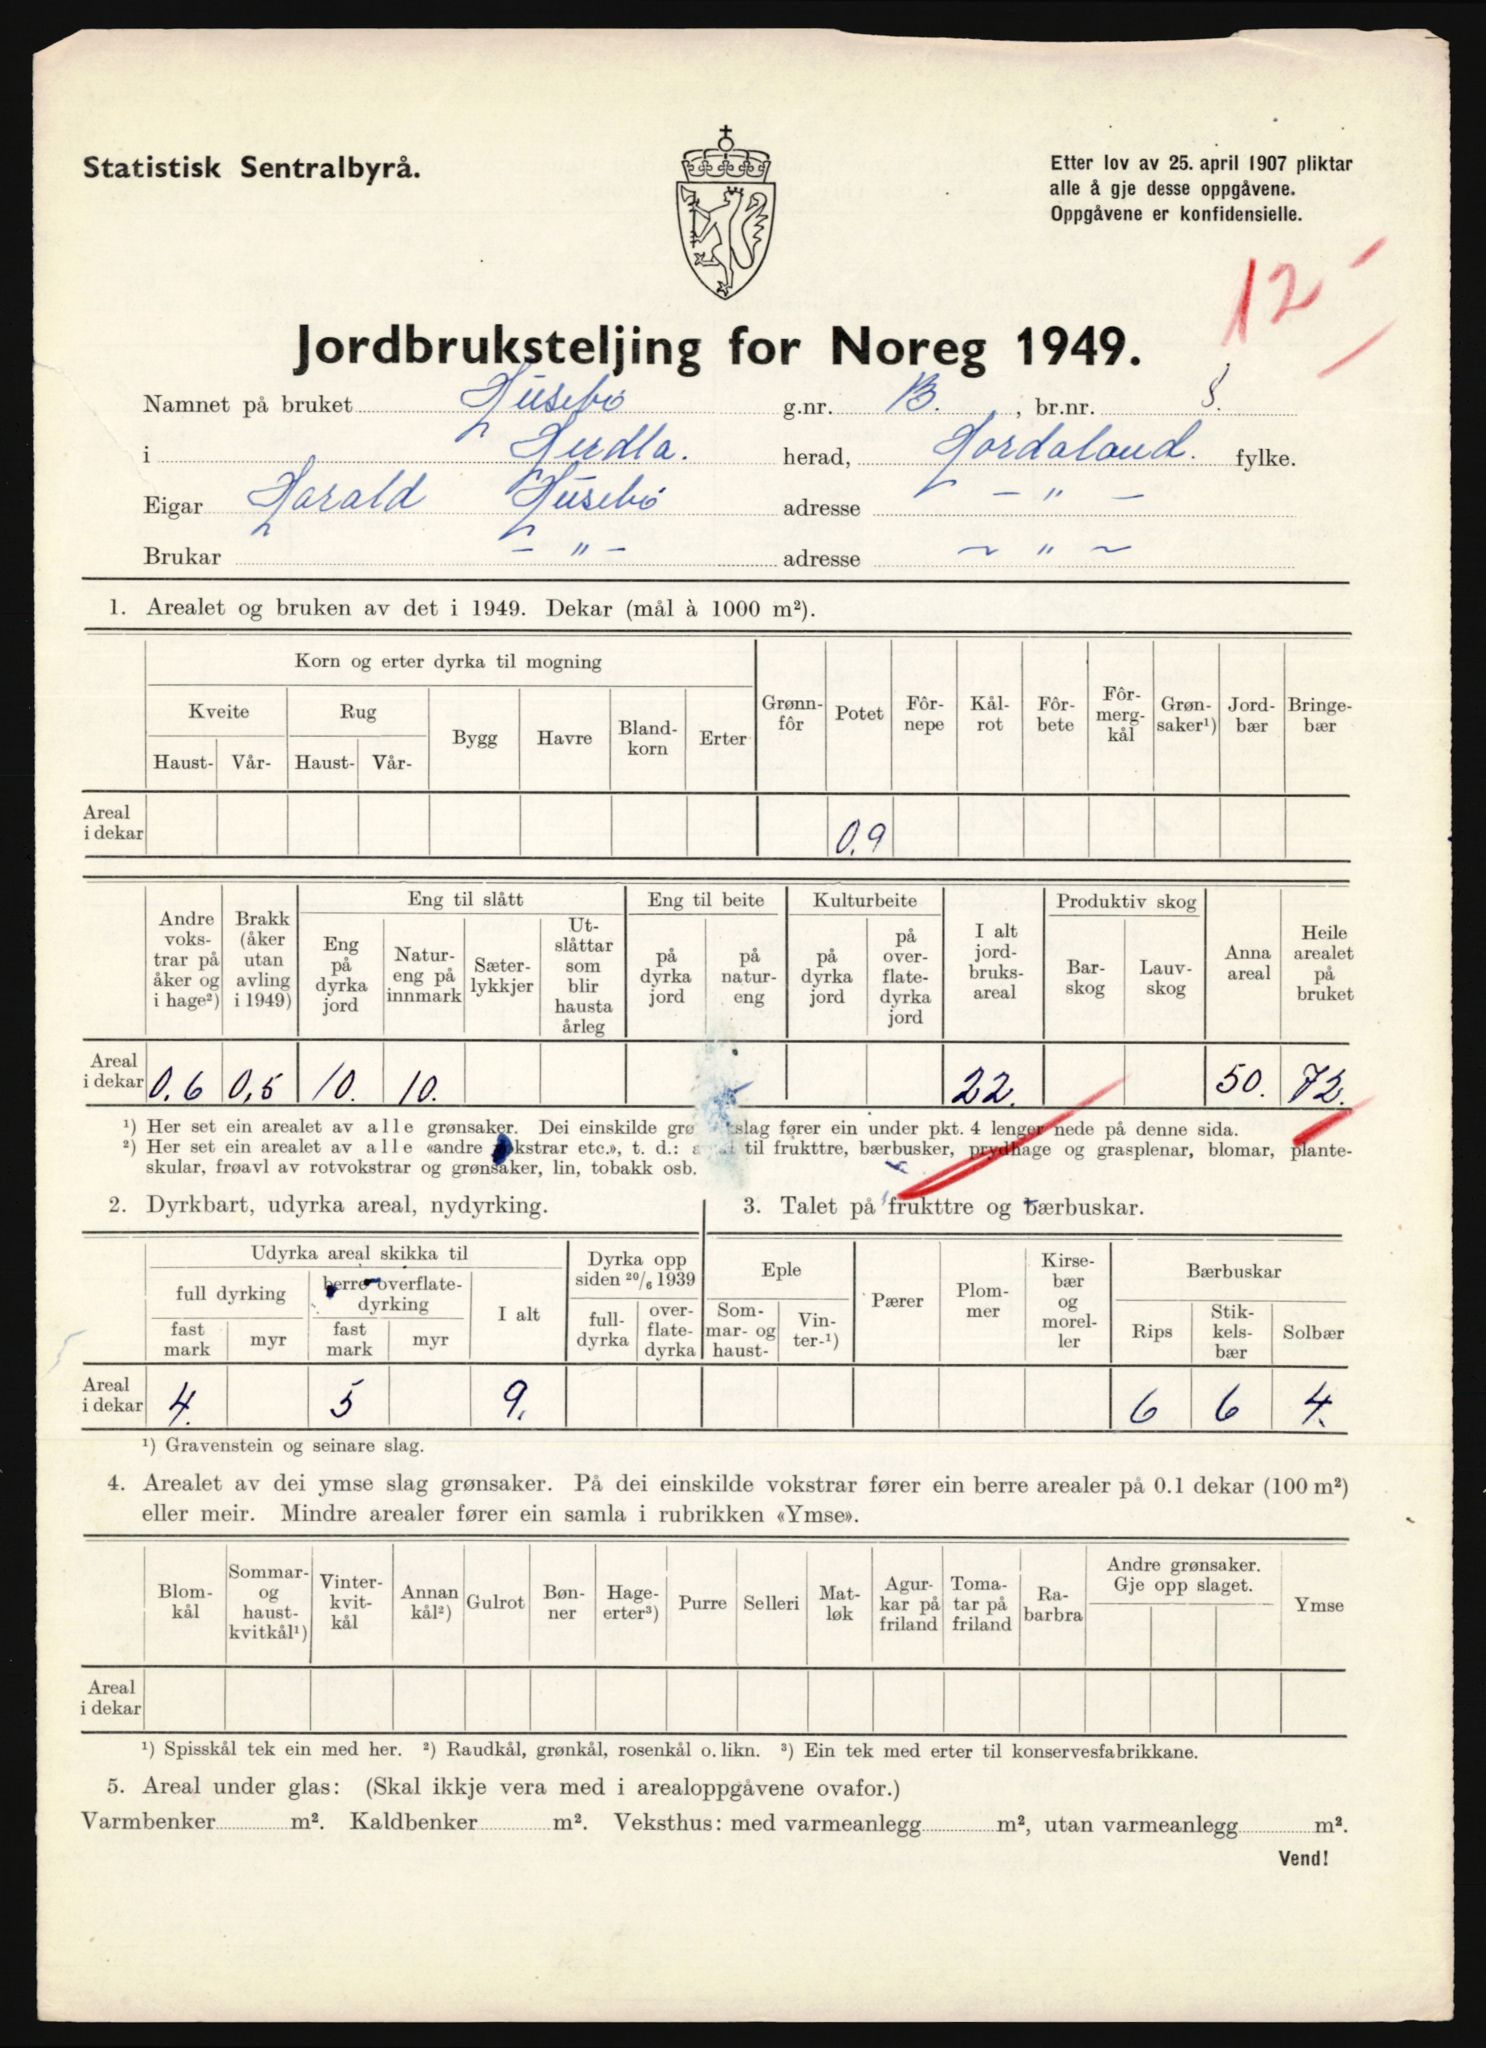 Statistisk Sentralbyrå.
Etter lov av 25. april 1907 pliktar
alle å gje desse oppgåvene.
Oppgåvene er konfidensielle.
12
Jordbruksteljing for Noreg 1949.
Namnet på bruket Husebö g.nr. 13. , br.nr. 8.
i Herdla. herad, Hordaland. fylke.
Eigar Harald Husebö adresse — " —
Brukar — " — adresse ~ " ~
1. Arealet og bruken av det i 1949. Dekar (mål à 1000 m²).
Korn og erter dyrka til mogning
Kveite Rug Bygg Havre Bland-korn Erter Grønn-fôr Potet Fôr-nepe Kål-rot Fôr-bete Fôr-mergkål Grøn-saker¹) Jord-bær Bringe-bær
Haust- Vår- Haust- Vår-
Areal i dekar 0,9
Eng til slått Eng til beite Kulturbeite Produktiv skog
Andre vokstrar på åker og i hage²) Brakk (åker utan avling i 1949) Eng på dyrka jord Natur-eng på innmark Sæter-lykkjer Ut-slåttar som blir hausta årleg på dyrka jord på natur-eng på dyrka jord på over-flate-dyrka jord I alt jord-bruks-areal Bar-skog Lauv-skog Anna areal Heile arealet på bruket
Areal i dekar 0,6 0,5 10. 10. 22. 50. 72.
¹) Her set ein arealet av alle grønsaker. Dei einskilde slag fører ein under pkt. 4 lenger nede på denne sida.
²) Her set ein arealet av alle «andre vokstrar etc.», t. d.: til frukttre, bærbusker, prydhage og grasplenar, blomar, plante-
skular, frøavl av rotvokstrar og grønsaker, lin, tobakk osb.
2. Dyrkbart, udyrka areal, nydyrking.
Udyrka areal skikka til Dyrka opp siden 20/6 1939
full dyrking berre overflate-dyrking I alt full-dyrka over-flate-dyrka
fast mark myr fast mark myr
Areal i dekar 4. 5 9.
3. Talet på frukttre og bærbuskar.
Eple Pærer Plom-mer Kirse-bær og morel-ler Bærbuskar
Som-mar- og haust- Vin-ter-¹) Rips Stik-kels-bær Solbær
6 6 4.
¹) Gravenstein og seinare slag.
4. Arealet av dei ymse slag grønsaker. På dei einskilde vokstrar fører ein berre arealer på 0.1 dekar (100 m²)
eller meir. Mindre arealer fører ein samla i rubrikken «Ymse».
Blom-kål Sommar- og haust-kvitkål¹) Vinter-kvit-kål Annan kål²) Gulrot Bøn-ner Hage-erter³) Purre Selleri Mat-løk Agur-kar på friland Toma-tar på friland Ra-barbra Andre grønsaker. Gje opp slaget. Ymse
Areal i dekar
¹) Spisskål tek ein med her. ²) Raudkål, grønkål, rosenkål o. likn. ³) Ein tek med erter til konservesfabrikkane.
5. Areal under glas: (Skal ikkje vera med i arealoppgåvene ovafor.)
Varmbenker m². Kaldbenker m². Veksthus: med varmeanlegg m², utan varmeanlegg m².
Vend!